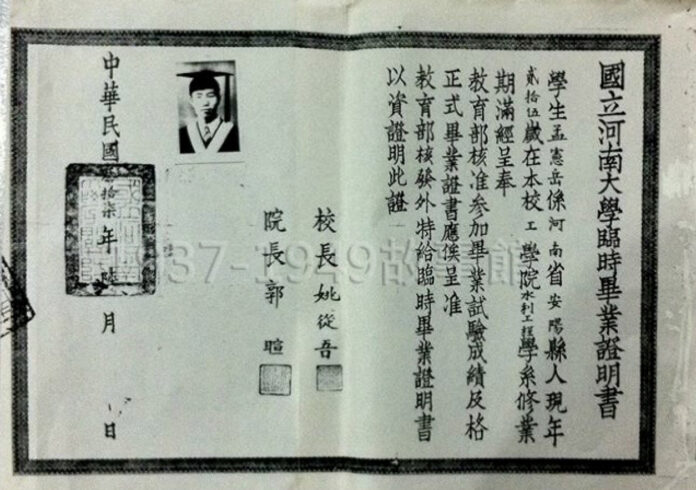 國立河南大學臨時畢業證明書
學生孟憲岳係河南省安陽縣人現年
貳拾伍歲在本校工學院水利工程學系修業
期滿經呈奉
教育部核准參加畢業試驗成績及格
正式畢業證書應俟呈准
教育部核發外特給臨時畢業證明書
以資證明此證
校長姚從吾
院長郭暄
中華民國叁拾柒年 月 日
1937-1949故事館